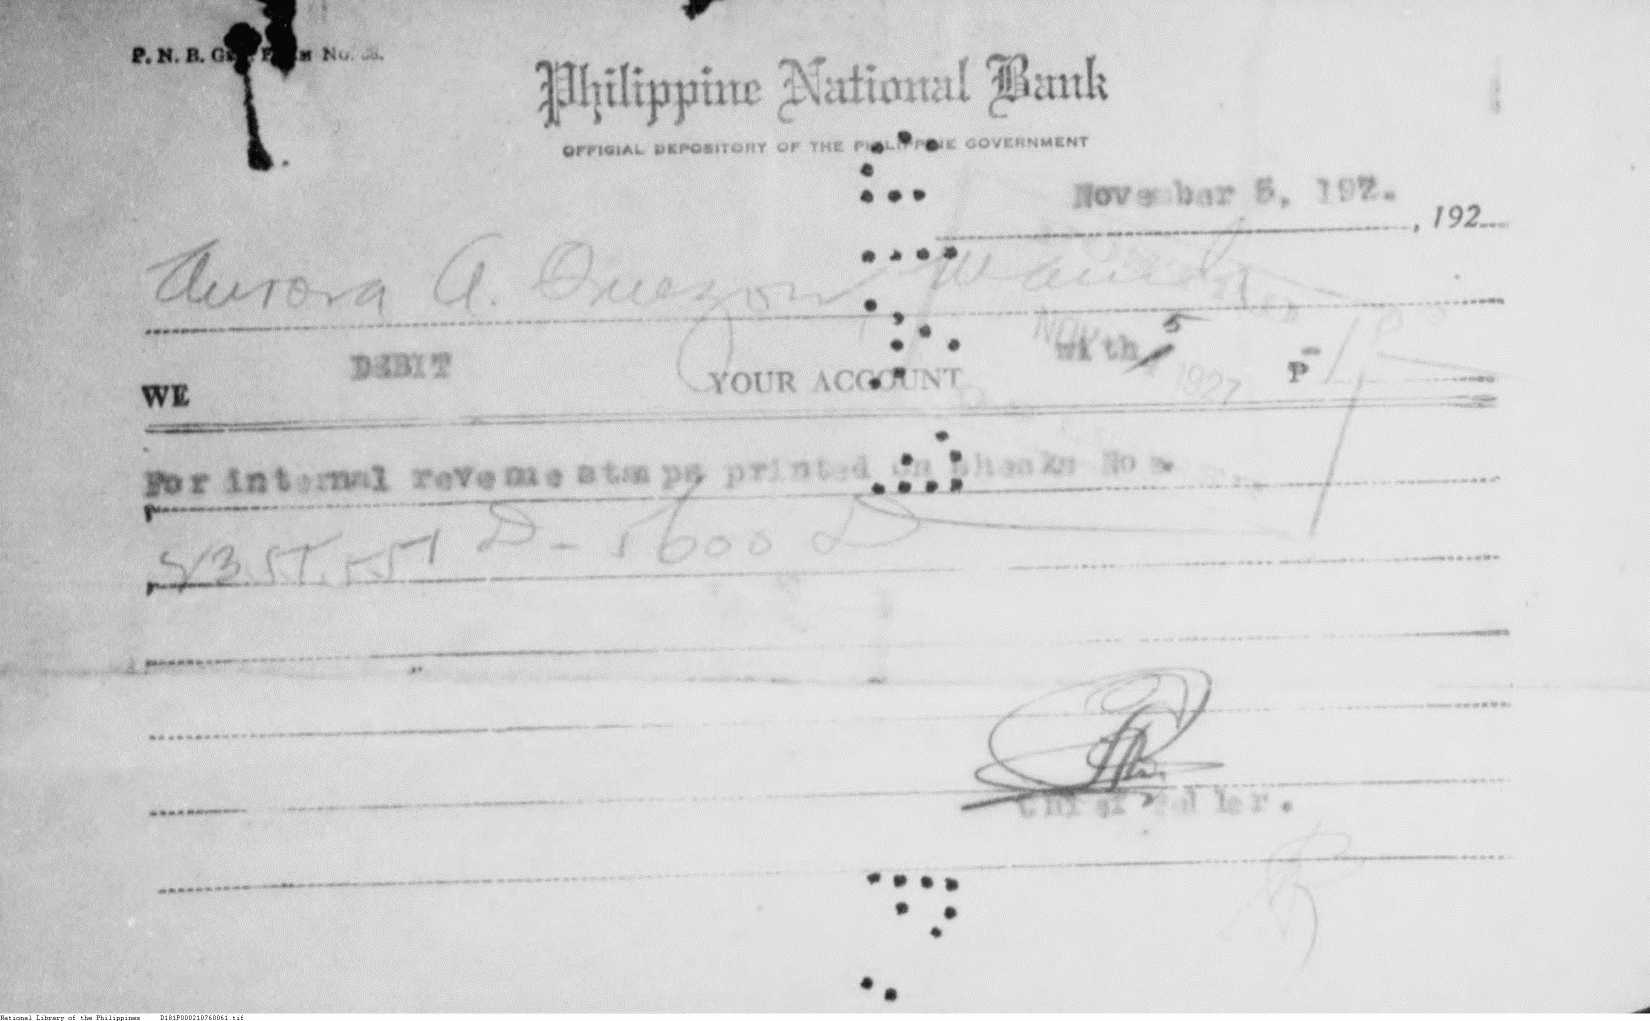 P. N. B. No.
Philippine National Bank
OFFICIAL DEPOSITORY OF THE PHILIPPINE GOVERNMENT
November 5, 192.
, 192
Aurora A. Quezon, Manila
NOV 5 1927
WE DEBIT YOUR ACCOUNT with P
For internal revenue stamps printed on checks Nos.
D - 5600 D
Chief Teller.
National Library of the Philippines D181P000210760061.tif